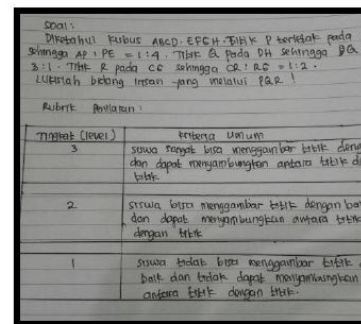 Soal:
Diketahui kubus ABCD.EFGH. Titik P terletak pada
sehingga AP : PE = 1 : 4. Titik Q pada DH sehingga DQ
3 : 1. Titik R pada CG sehingga CR : RG = 1 : 2.
Lukislah bidang irisan yang melalui PQR !
Rubrik Penilaian :
Tingkat (Level) Kriteria Umum
3 siswa sangat bisa menggambar titik
dan dapat menyambungkan antara titik
titik
2 siswa bisa menggambar titik dengan
dan dapat menyambungkan antara titik
dengan titik
1 siswa tidak bisa menggambar titik
baik dan tidak dapat menyambungkan
antara titik dengan titik.